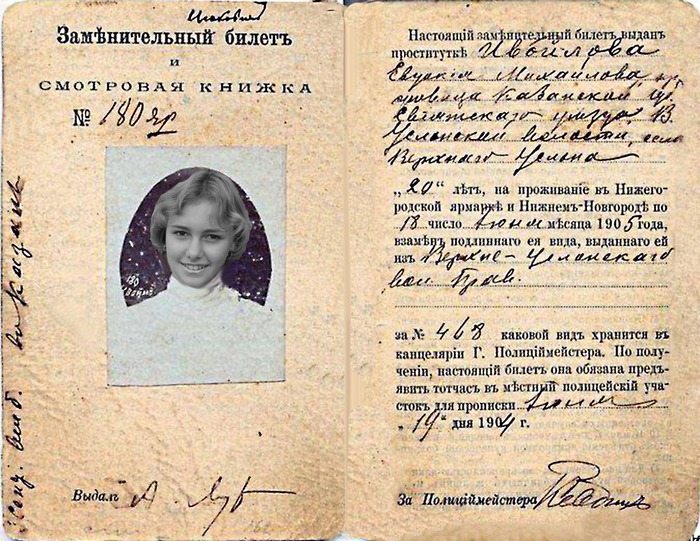 Замѣнительный билетъ
и
СМОТРОВАЯ КНИЖКА
№ 180 яр
Выдалъ
въ Казань
Настоящій замѣнительный билетъ выданъ
проституткѣ Ивойлова
Евдокія Михайлова, кр.
Казанской губ.
уѣзда, В.
Услонской волости, села
Верхняго Услона
„20“ лѣтъ, на проживаніе въ Нижего-
родской ярмаркѣ и Нижнемъ-Новгородѣ по
18 число Іюня мѣсяца 1905 года,
взамѣнъ подлиннаго ея вида, выданнаго ей
изъ Верхне-Услонскаго
вол Прав.
за № 468 каковой видъ хранится въ
канцеляріи Г. Полиціймейстера. По полу-
ченіи, настоящій билетъ она обязана предъ-
явить тотчасъ въ мѣстный полицейскій уча-
стокъ для прописки Іюня
„19“ дня 1904 г.
За Полиціймейстера